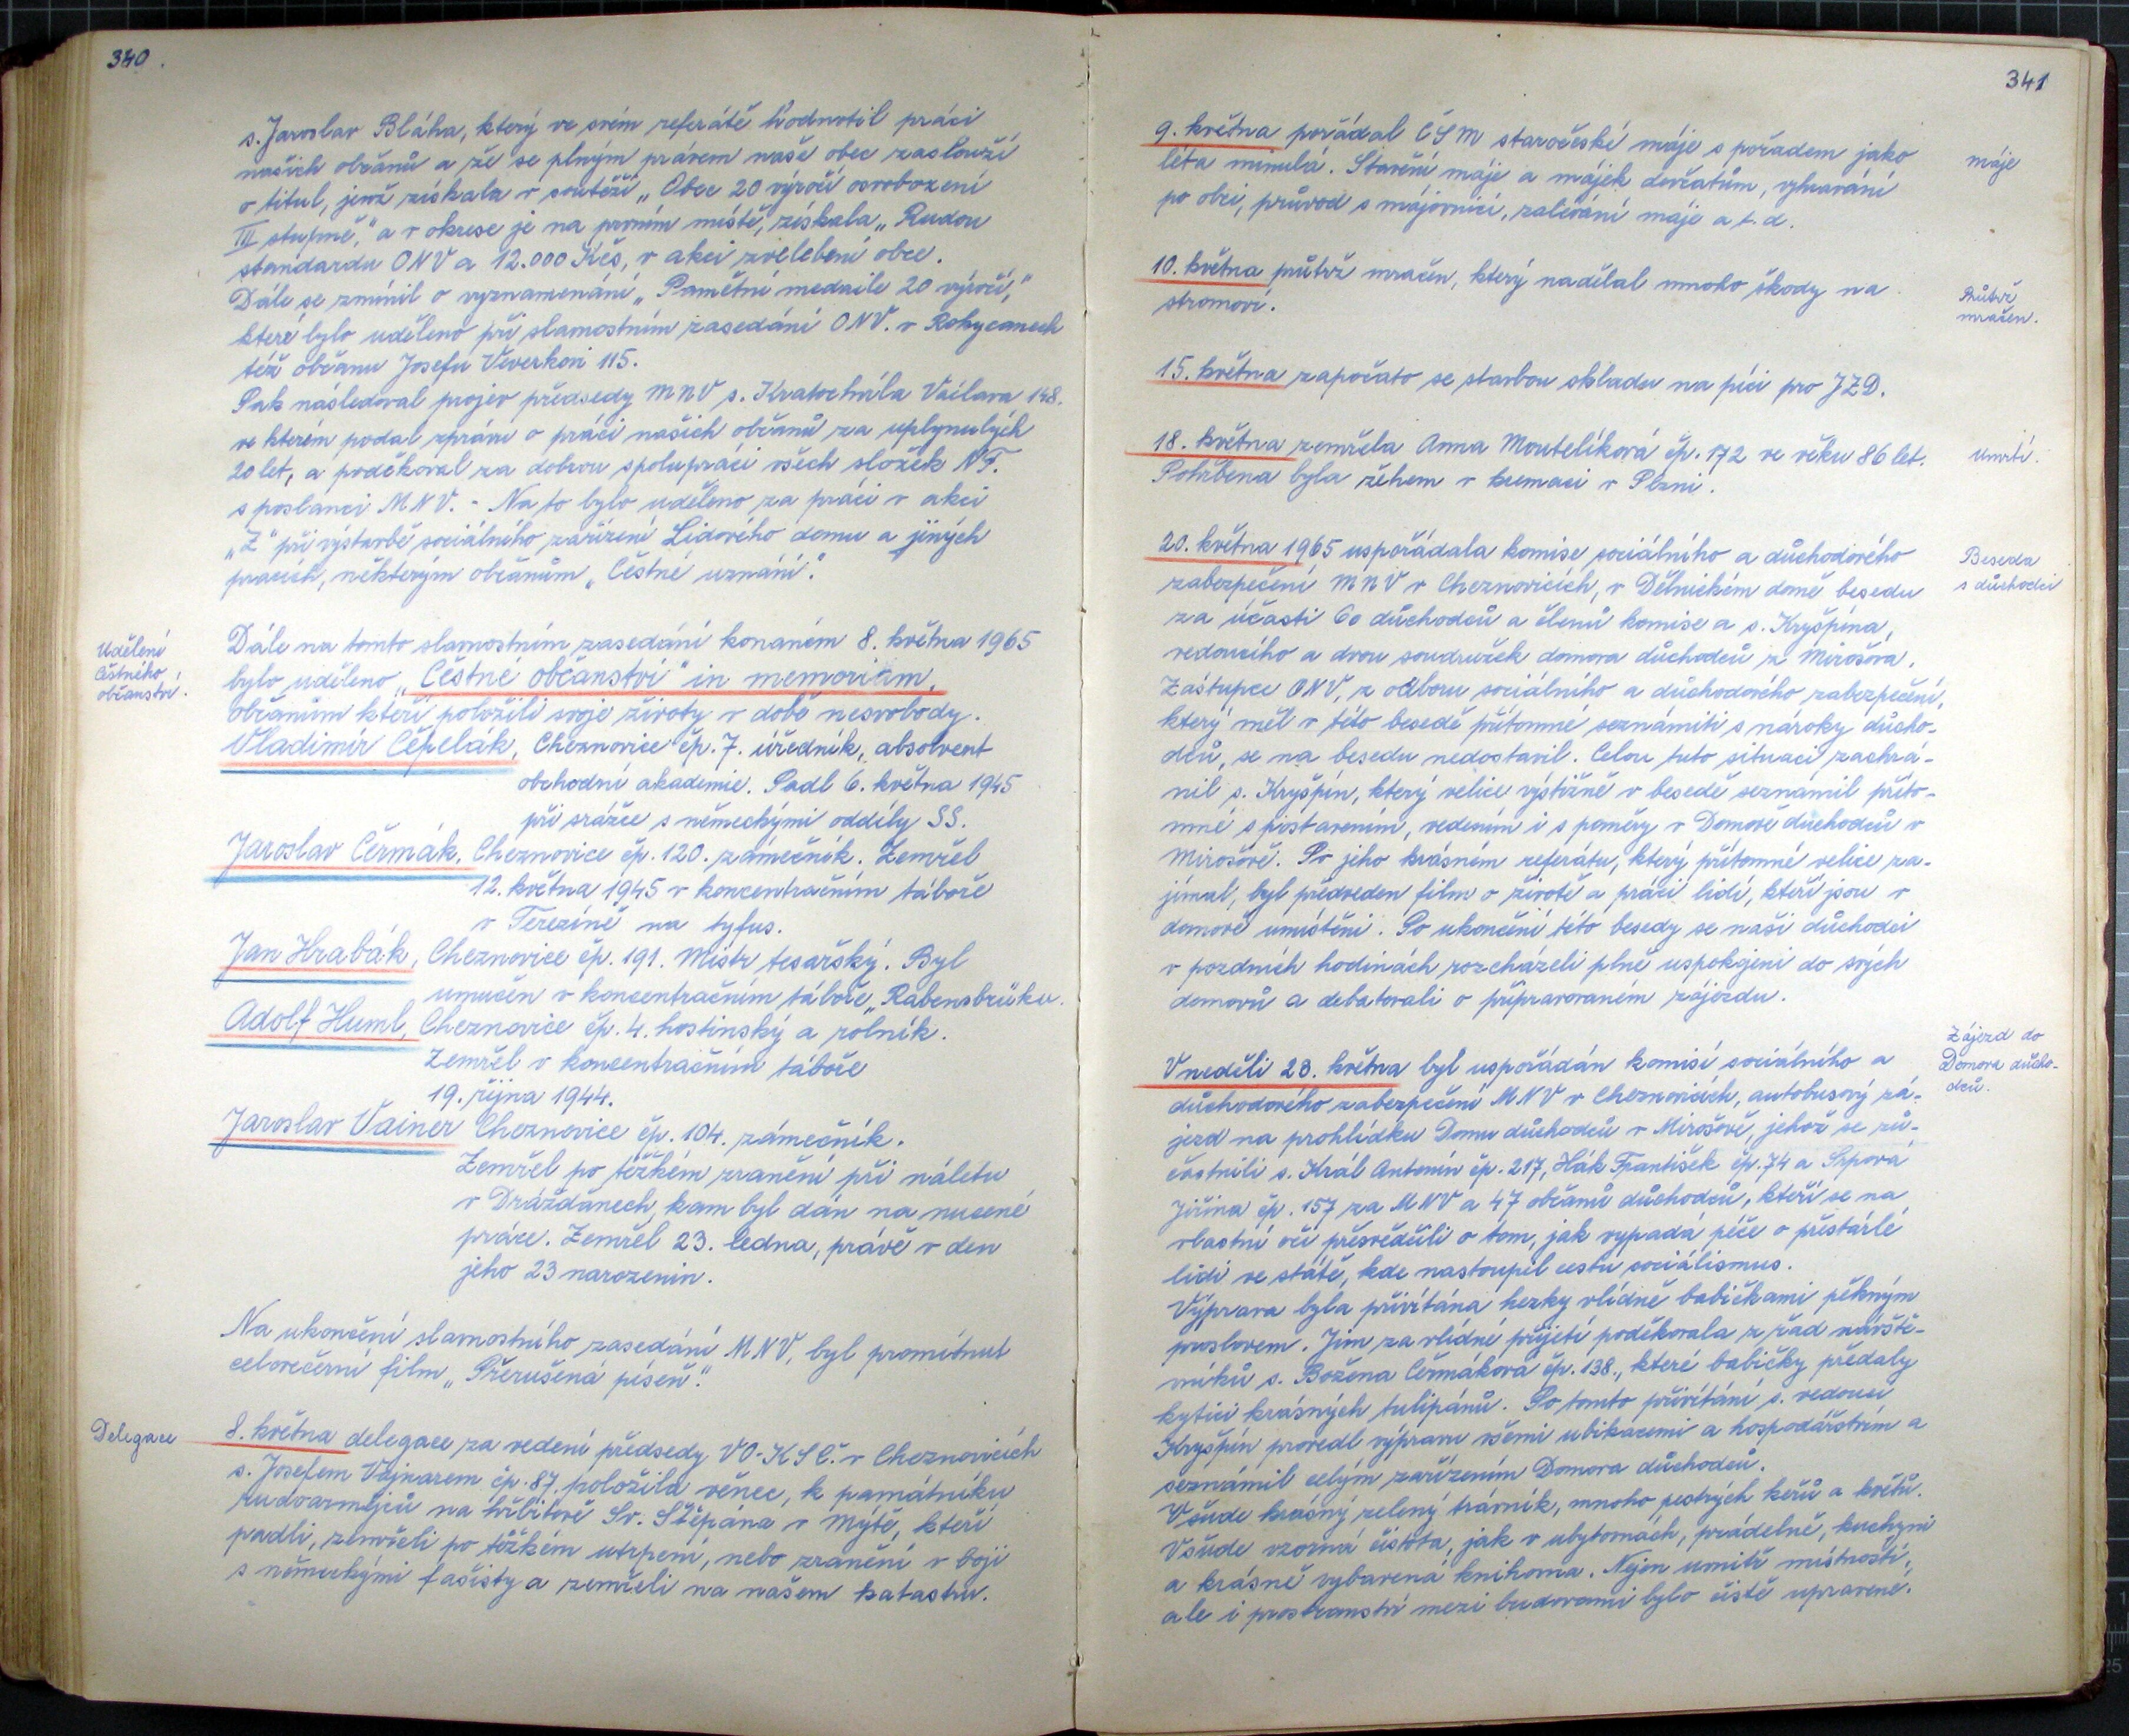 340.
s. Jaroslav Bláha, který ve svém referátě hodnotil práci
našich občanů a že se plným právem naše obec zaslouží
o titul, jenž získala v soutěži „Obec 20 výročí osvobození
III stupně," a v okrese je na prvním místě, získala „Rudou
standardu ONV a 12.000 Kčs, v akci zvelebení obce.
Dále se zmínil o vyznamenání „Pamětní medaile 20 výročí,"
které bylo uděleno při slamostním zasedání ONV. v Rokycanech
též občanu Josefu Veverkovi 115.
Pak následoval projev předsedy MNV s. Kratochvíla Václava 148.
ve kterém podal zprávu o práci našich občanů za uplynulých
20 let, a poděkoval za dobrou spolupráci všech složek NF.
s poslanci MNV. - Na to bylo uděleno za práci v akci
„Z" při výstavbě sociálního zařízení Lidového domu a jiných
pracích, některým občanům „Čestné uznání".
Udělení
čestného
občanství.
Dále na tomto slamostním zasedání konaném 8. května 1965
bylo uděleno „Čestné občanství" in memoriam,
občanům kteří položili svoje životy v době nesvobody.
Vladimír Cěpelák, Cheznovice čp. 7. úředník, absolvent
obchodní akademie. Padl 6. května 1945
při srážce s německými oddíly SS.
Jaroslav Čermák, Cheznovice čp. 120. zámečník. Zemřel
12. května 1945 v koncentračním táboře
v Terezíně na tyfus.
Jan Hrabák, Cheznovice čp. 191. Mistr tesařský. Byl
umučen v koncentračním táboře „Rabensbrüku.
Adolf Huml, Cheznovice čp. 4. hostinský a rolník.
Zemřel v koncentračním táboře
19. října 1944.
Jaroslav Vainer Cheznovice čp. 104. zámečník.
Zemřel po těžkém zranění při náletu
v Drážďanech, kam byl dán na nucené
práce. Zemřel 23. ledna, právě v den
jeho 23 narozenin.
Na ukončení slamostního zasedání MNV, byl promítnut
celovečerní film „Přerušená píseň".
Delegace
8. května delegace za vedení předsedy VO-KSČ. v Cheznovicích
s. Josefem Vajnarem čp. 87. položila věnec, k památníku
rudoarmějců na hřbitově Sv. Štěpána v Mýtě, kteří
padli, zemřeli po těžkém utrpení, nebo zranění v boji
s německými fašisty a zemřeli na našem katastru.
341
9. května pořádal ČSM staročeské máje s pořadem jako
léta minulá. Stavění máje a májek děvčatům, vyhrávání
po obci, průvod s májovnicí, zalévání máje a t. d.
máje
10. května průtrž mračen, který nadělal mnoho škody na
stromoví.
Průtrž
mračen.
15. května započato se stavbou skladu na píci pro JZD.
18. května zemřela Anna Moutelíková čp. 172 ve věku 86 let.
Pohřbena byla žehem v kremaci v Plzni.
Úmrtí.
20. května 1965 uspořádala komise sociálního a důchodového
zabezpečení MNV v Cheznovicích, v Dělnickém domě besedu
za účasti 60 důchodců a členů komise a s. Kryšpína,
vedoucího a dvou soudružek domova důchodců z Mirošova.
Zástupce ONV, z odboru sociálního a důchodového zabezpečení,
který měl v této besedě přítomné seznámiti s nároky důcho-
dců, se na besedu nedostavil. Celou tuto situaci zachrá-
nil s. Kryšpín, který velice výstižně v besedě seznámil příto-
mné s postavením, vedením i s poměry v Domově důchodců v
Mirošově. Po jeho krásném referátu, který přítomné velice za-
jímal, byl předveden film o životě a práci lidí, kteří jsou v
domově umístěni. Po ukončení této besedy se naši důchodci
v pozdních hodinách rozcházeli plně uspokojeni do svých
domovů a debatovali o připravovaném zájezdu.
Beseda
s důchodci
V neděli 23. května byl uspořádán komisí sociálního a
důchodového zabezpečení MNV v Cheznovicích, autobusový zá-
jezd na prohlídku Domu důchodců v Mirošově, jehož se zú-
častnili s. Král Antonín čp. 217, Hák František čp. 74 a Srpová
Jiřina čp. 157 za MNV a 47 občanů důchodců, kteří se na
vlastní oči přesvědčili o tom, jak vypadá péče o přestárlé
lidi ve státě, kde nastoupil cestu sociálismus.
Výprava byla přivítána hezky vlídně babičkami pěkným
proslovem. Jim za vlídné přijetí poděkovala z řad návště-
vníků s. Božena Čermáková čp. 138., které babičky předaly
kytici krásných tulipánů. Po tomto přivítání s. vedoucí
Kryšpín provedl výpravu všemi ubikacemi a hospodářstvím a
seznámil celým zařízením Domova důchodců.
Všude krásný zelený trávník, mnoho pestrých keřů a květů.
Všude vzorná čistota, jak v ubytovnách, prádelně, kuchyni
a krásně vybavená knihovna. Nejen umitř místností,
ale i prostranství mezi budovami bylo čistě upravené.
Zájezd do
Domova důcho-
dců.